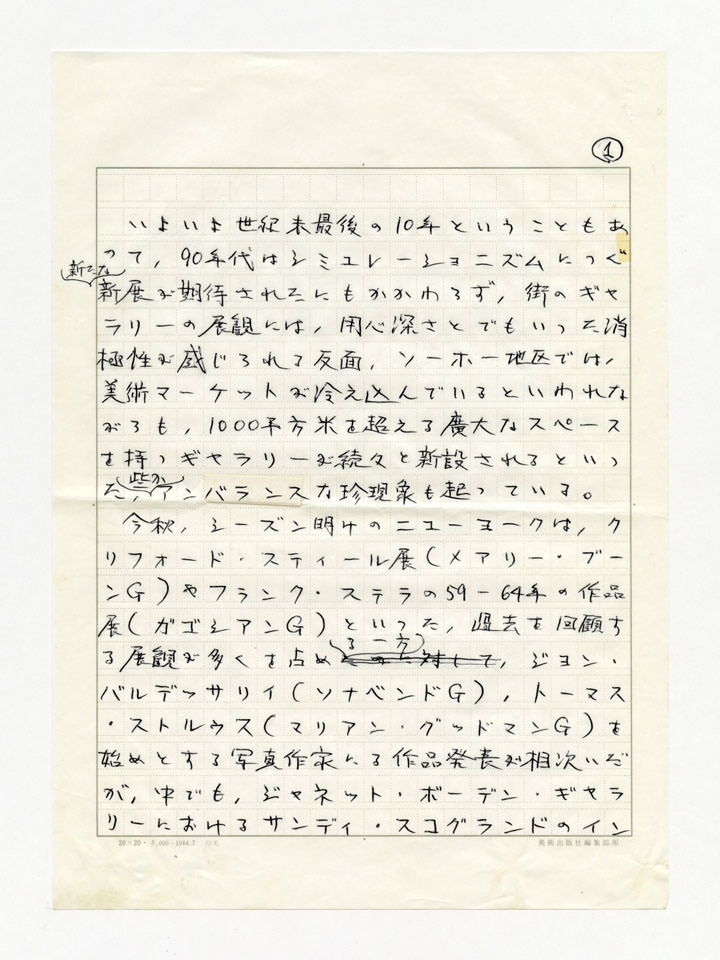 1
いよいよ世紀末最後の10年ということもあ
って，90年代はシミュレーショニズムにつぐ
新たな
新展が期待されたにもかかわらず，街のギャ
ラリーの展観には，用心深さとでもいった消
極性が感じられる反面，ソーホー地区では，
美術マーケットが冷え込んでいるといわれな
がらも，1000平方米を超える廣大なスペース
を持つギャラリーが続々と新設されるといっ
些か
た，アンバランスな珍現象も起っている。
今秋，シーズン明けのニューヨークは，ク
リフォード・スティール展(メアリー・ブー
ンG)やフランク・ステラの59-64年の作品
展(ガゴシアンG)といった，過去を回顧す
る一方
る展観が多くを占め，ジョン・
バルデッサリイ(ソナベンドG)，トーマス
・ストルウス(マリアン・グッドマンG)を
始めとする写真作家による作品発表が相次いだ
が，中でも，ジャネット・ボーデン・ギャラ
リーにおけるサンディ・スコグランドのイン
20×20・3,000・1984.7
美術出版社編集部用